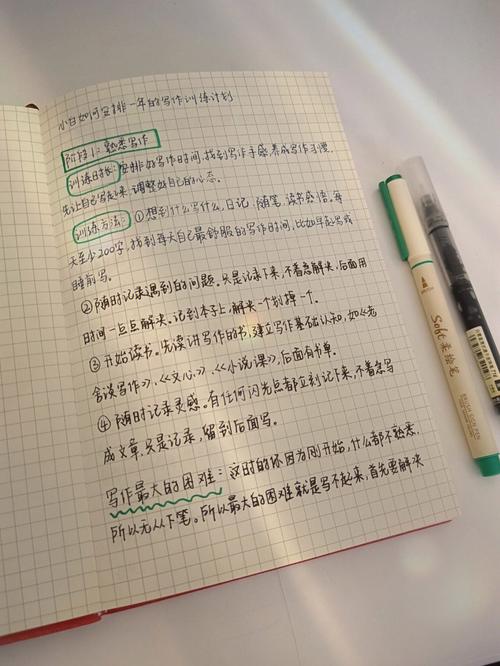 小白如何安排一年的写作训练计划
阶段1:熟悉写作
训练时长:安排好写作时间,找到写作手感,养成写作习惯,
先让自己写起来,调整好自己的心态。
训练方法:①想到什么写什么,日记,随笔,读书感悟。每
天至少200字,找到每天自己最舒服的写作时间,比如早起写或
睡前写。
②随时记录遇到的问题。只是记录下来,不着急解决,后面用
时间一点点解决。记到本子上,解决一个划掉一个。
③开始读书。先读讲写作的书,建立写作基础认知,如《老
舍谈写作》,《文心》,《小说课》,后面有书单。
④随时记录灵感。有任何闪光点都立刻记下来,不着急写
成文章,只是记录,留到后面写。
写作最大的困难:这时的你因为刚开始,什么都不熟悉,
所以无从下笔。所以最大的困难就是写不起来,首先要解决
Soft 柔绘笔